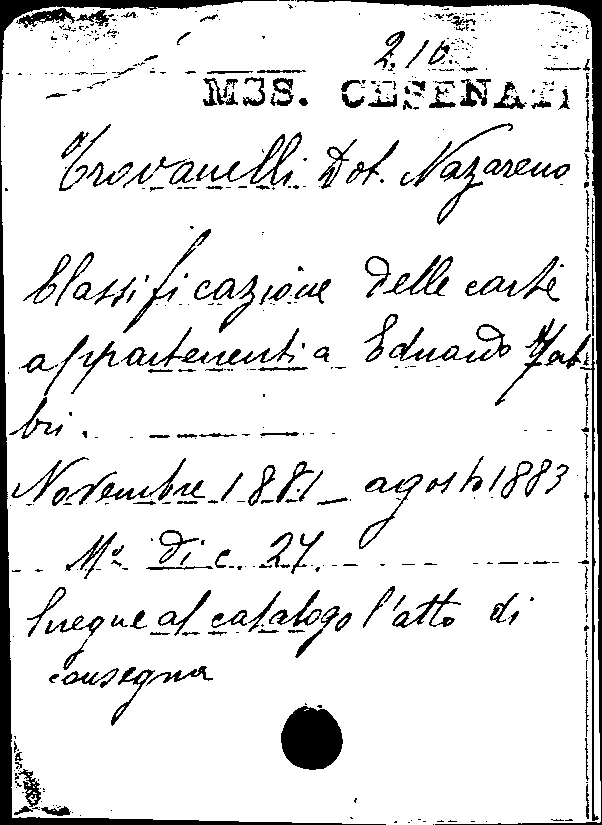 2.10.
MSS. CESENATI
Trovanelli Dot. Nazareno
Classificazione delle carte
appartenenti a Eduardo Fab
bri.
Novembre 1881 - agosto 1883
Ms di c. 27.
Segue al catalogo l'atto di
consegna